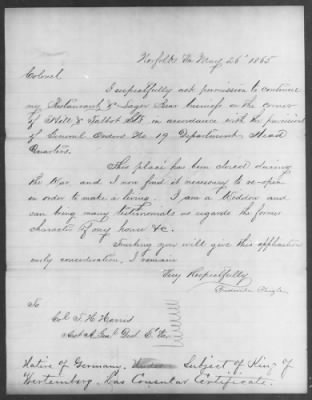 Norfolk Va May 26" 1865
Colonel
I respectfully ask permission to continue
my Restaurant & Lager Bear business on the corner
of Hill & Talbot Sts. in accordance with the provisions
of General Orders No. 19 Department Head
Quarters.
This place has been closed during
the War, and I now find it necessary to re-open
in order to make a living. I am a Widdow and
can bring many testimonials as regards the former
character of my house &c.
Trusting you will give this application
early consideration, I remain
Very Respectfully
To
Col. T. H. Harris
Asst A. Genl Dept. E. Va.
Native of Germany, Subject of King of
Wertemberg. Has Consular Certificate.